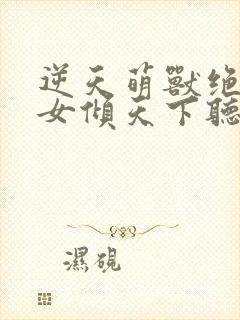 逆天萌獸绝
女傾天下聽
濕硯